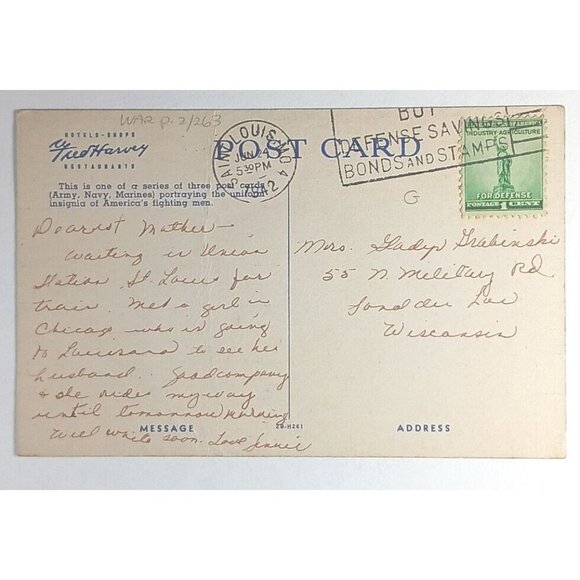 WAR P. 2/263
HOTELS - SHOPS
Fred Harvey
RESTAURANTS
POST CARD
SAINT LOUIS, MO. 4
JUN 24
5 30 PM
1942
BUY
DEFENSE SAVINGS
BONDS AND STAMPS
INDUSTRY-AGRICULTURE
FOR DEFENSE
POSTAGE 1 CENT
This is one of a series of three post cards
(Army, Navy, Marines) portraying the uniform
insignia of America's fighting men.
G
Dearest Mother—
Waiting in Union
Station St Louis for
train. Met a girl in
Chicago who is going
to Louisiana to see her
husband. Good company
& she rides my way
until tomorrow morning
Will write soon. Love Jennie
Mrs. Gladys Grabinski
55 N. Military Rd
Fond du Lac
Wisconsin
MESSAGE
2B-H261
ADDRESS